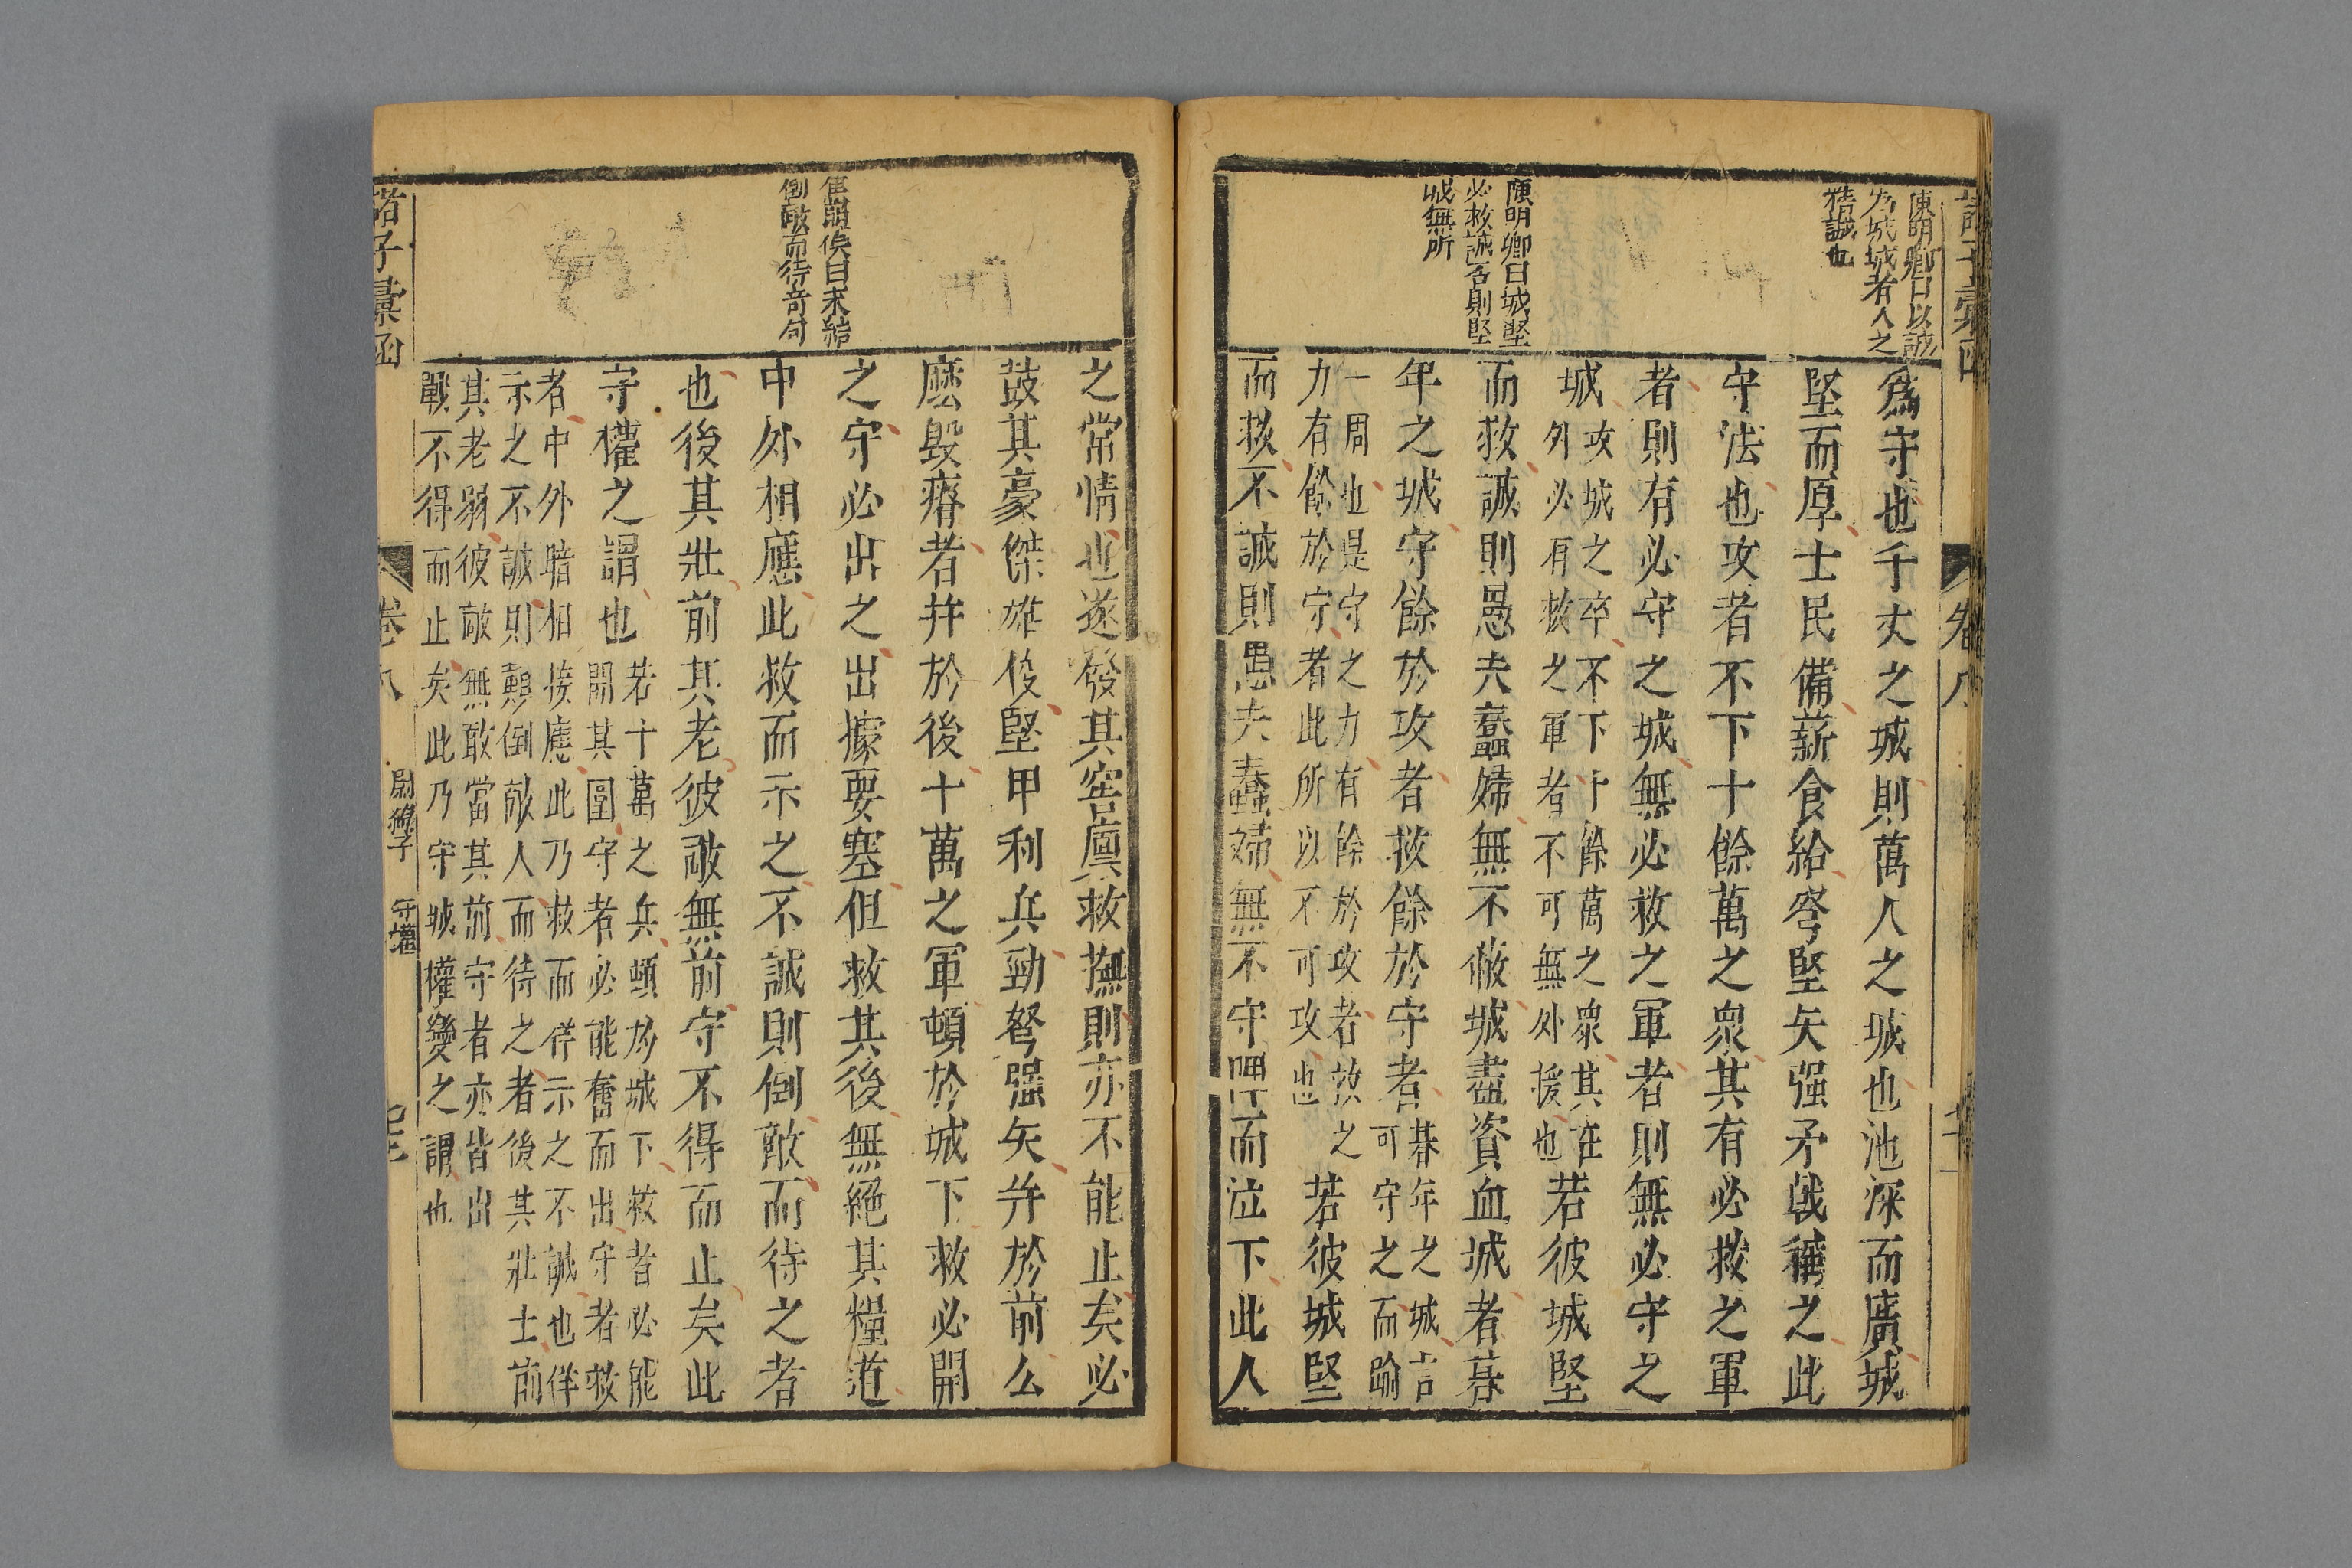 陳明卿曰以誠
為城城者人之
精誠也
陳明卿曰城堅
必救誠否則堅
城無所
為守也千丈之城則萬人之城也池深而廣城
堅而厚士民備薪食給弩堅矢强矛戟稱之此
守法也攻者不下十餘萬之衆其有必救之軍
者則有必守之城無必救之軍者則無必守之
城攻城之卒不下十餘萬之衆其在
外必有救之軍者不可無外援也若彼城堅
而救誠則愚夫蠢婦無不蔽城盡資血城者朞
年之城守餘於攻者救餘於守者朞年之城言
可守之而踰
一周也是守之力有餘於攻者故之
力有餘於守者此所以不可攻也若彼城堅
而救不誠則愚夫蠢婦無不守陴而泣下此人
曰未結
倒敵而待奇句
之常情也遂發其窖廩救撫則亦不能止矣必
鼓其豪傑雄俊堅甲利兵勁弩强矢幷於前么
麽毀瘠者幷於後十萬之軍頓於城下救必開
之守必出之出據要塞但救其後無絕其糧道
中外相應此救而示之不誠則倒敵而待之者
也後其壯前其老彼敵無前守不得而止矣此
守權之謂也若十萬之兵頓於城下救者必能
開其圍守者必能奮而出守者救
者中外暗相接應此乃救而佯示之不誠也佯
示之不誠則顛倒敵人而待之者後其壯士前
其老弱彼敵無敢當其前守者亦皆出
戰不得而止矣此乃守城權變之謂也
諸子彙函
卷八
尉繚子 守權